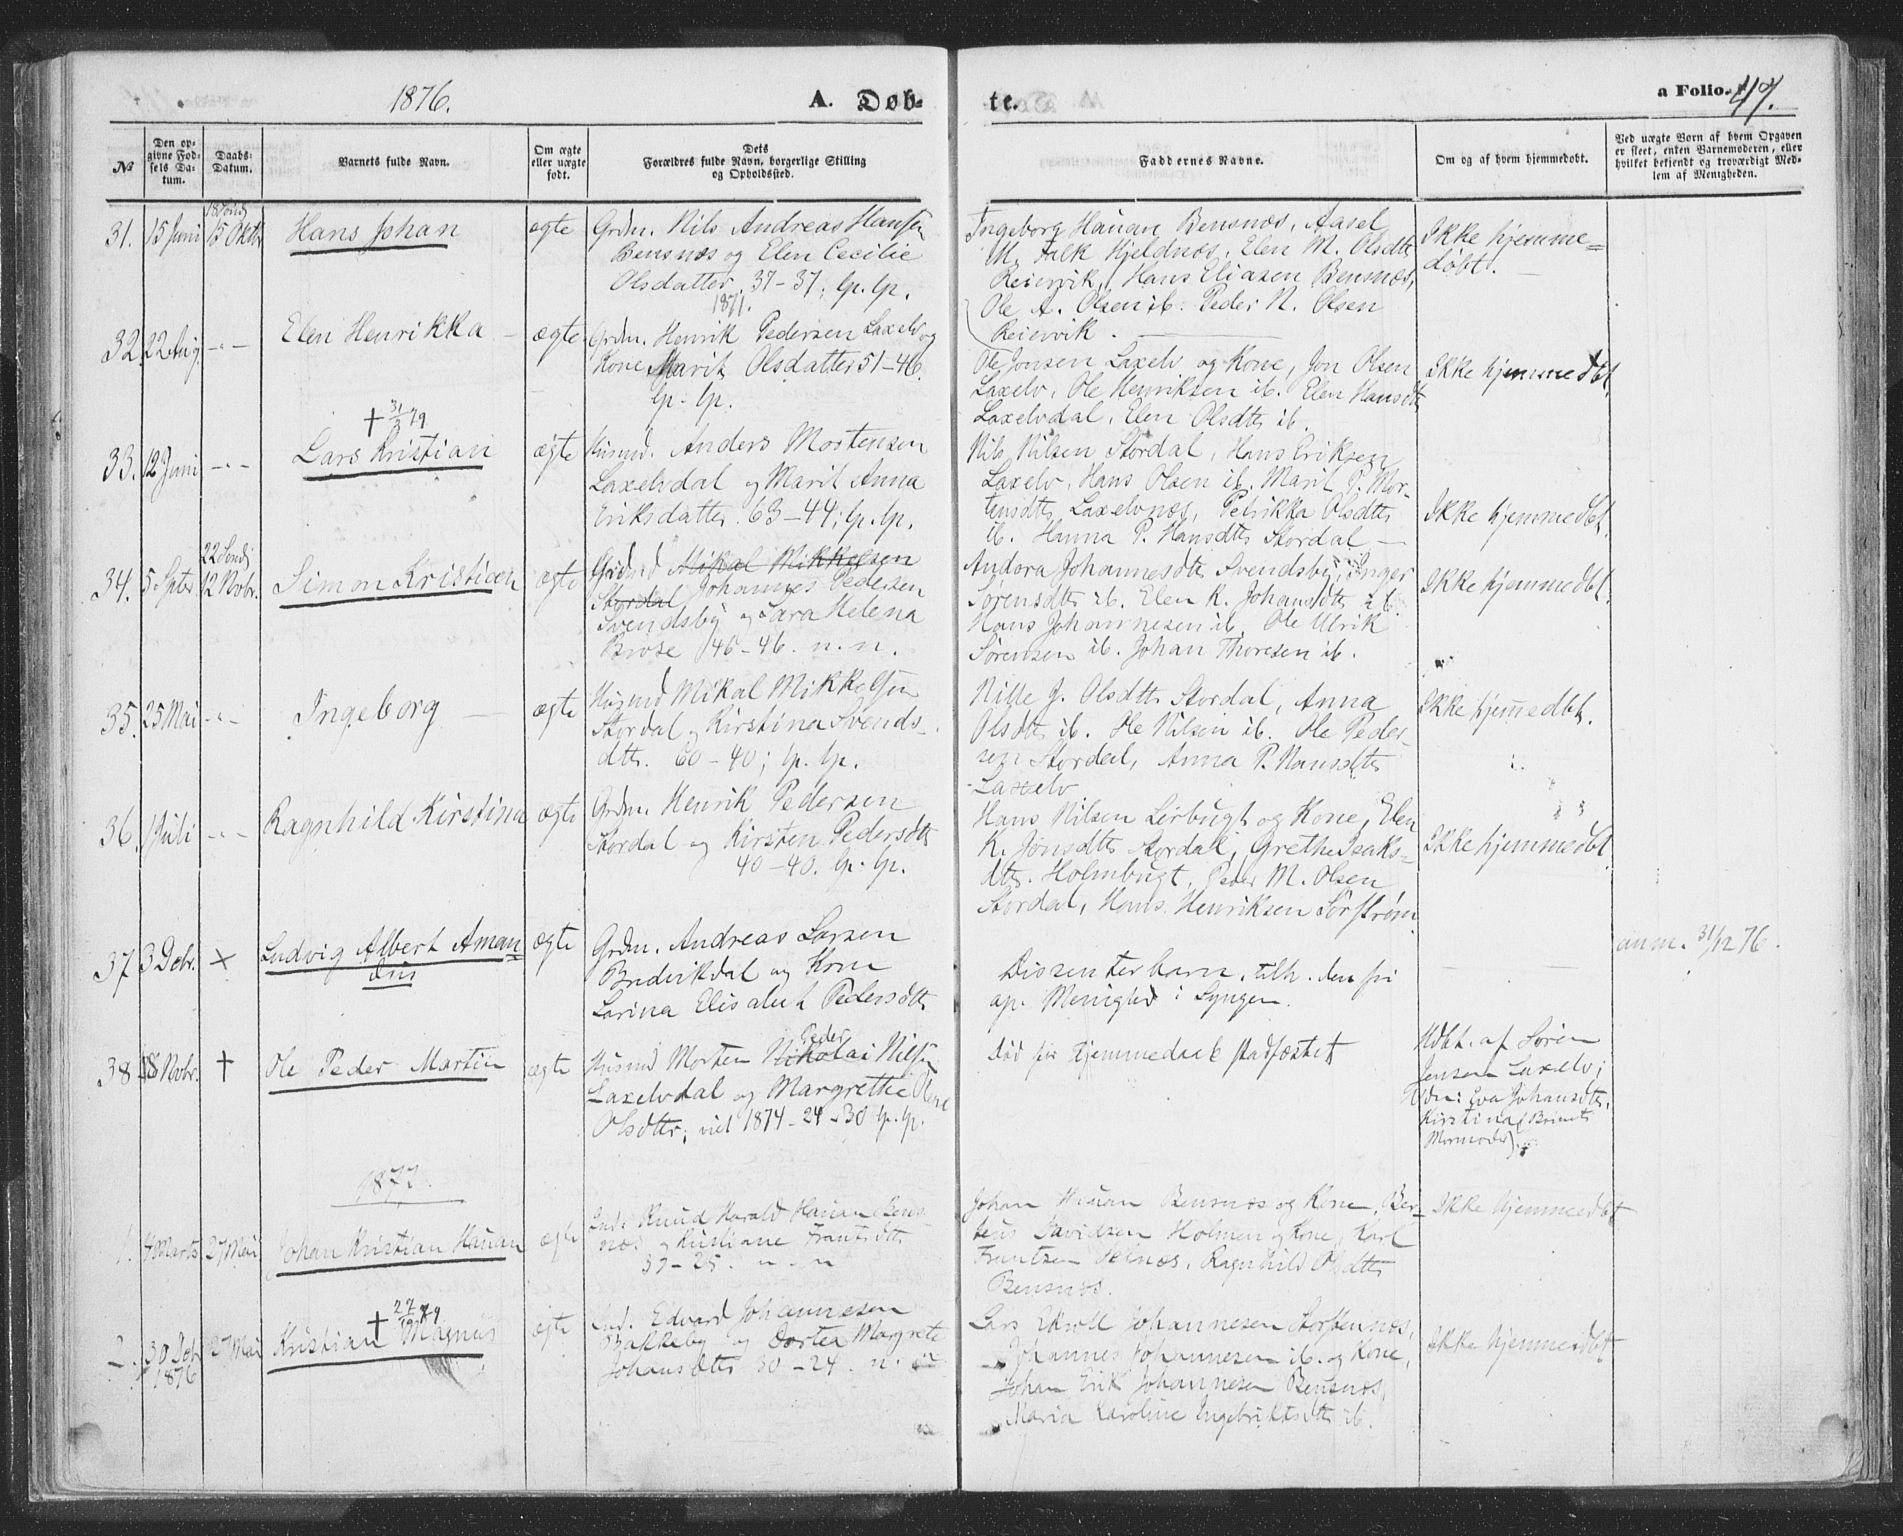 1876.
A. Døb-
te.
a Folio. 47.
№
Den op-
givne Fød-
sels Da-
tum.
Daabs-
Datum.
Barnets fulde Navn.
Om ægte
eller uægte
født.
Dets
Forældres fulde Navn, borgerlige Stilling
og Opholdssted.
Faddernes Navne.
Om og af hvem hjemmedøbt.
Ved uægte Børn af hvem Opgaven
er skeet, enten Barnemoderen, eller
hvilket bekjendt og troværdigt Med-
lem af Menigheden.
31. 15 Juni 15 Oktbr Hans Johan ægte
Grdm. Nils Andreas Hansen
Bensnæs og Elen Cecilie
Olsdatter 37-37; lp. lp.
1871.
Ingeborg Hauan Bensnæs, Aasel
M. Falk Hjeldnæs, Elen M. Olsdtr
Reiervik, Hans Eliasen Bensnæs,
Ole A. Olsen ib. Peder N. Olsen
Reiervik.
Ikke hjemme=
døbt.
32. 22 Aug. -"- Elen Henrikka ægte
Grdm. Henrik Pedersen Laxelv og
Kone Marit Olsdatter 51-46.
lp. lp.
Ole Jonsen Laxelv og Kone, Jon Olsen
Laxelv, Ole Henriksen ib. Elen Hansdtr
Laxelvdal, Elen Olsdtr ib.
Ikke hjemmedbt.
33. 12 Juni -"- † 31/3 79
Lars Kristian ægte
Husmd. Anders Mortensen
Laxelvdal og Marit Anna
Eriksdatter. 63-44; lp. lp.
Nils Nilsen Stordal, Hans Eriksen
Laxelv, Hans Olsen ib. Marit P. Mor-
tensdtr Laxelvnæs, Petrikka Olsdtr
ib. Hanna P. Hansdtr Stordal
Ikke hjemmedbt.
34. 5 Sptr. 12 Novbr. Simon Kristian ægte
Mikal Mikkelsen
Stordal Johannes Pedersen
Svendsby og Sara Helena
Brose 46-46. n. n.
Andora Johannesdtr Svendsby, Inger
Sørensdtr ib. Elen K. Johansdtr ib.
Hans Johannesen ib. Ole Ulrik
Sørensen ib. Johan Thoresen ib.
Ikke hjemmedbt.
35. 25 Mai -"- Ingeborg ægte
Husmd Mikal Mikkelsen
Stordal og Kirstina Svends-
dtr. 60-40; lp. lp.
J. Olsdtr Stordal, Anna
Olsdtr ib. Ole Nilsen ib. Ole Peder-
sen Stordal, Anna P. Hansdtr
Laxelv
Ikke hjemedbt.
36. 1 Juli -"- Ragnhild Kirstina ægte
Grdm. Henrik Pedersen
Stordal og Kirsten Pedersdtr
40-40. lp. lp.
Hans Nilsen Lerbugt og Kone, Elen
K. Jonsdtr Stordal, Grethe Isaks-
dtr. Holmbugt, Peder M. Olsen
Stordal, Hans Henriksen Sørstrøm
Ikke hjemmedbt.
37. 3 Debr. × Ludvig Albert Aman=
dus ægte
Grdm. Andreas Larsen
Breivikdal og Kone
Larina Elisabet Pedersdtr
Dissenterbarn, tilh. den fri
ap. Menighed i Lyngen.
anm. 31/12 76.
38. 18 Novbr. † Ole Peder Martin ægte
Peder
Husmd Morten Nikolai Nilsen
Laxelvdal og Margrethe Olene
Olsdtr; viet 1874-24-30 lp. lp.
Død før Hjemmedaab stadfæstet
Hdbt. af Søren
Jensen Laxelv;
Eva Johansdtr,
Kirstina (Barnets
Mormoder).
1877.
1. 4 Marts 27 Mai Johan Kristian Hauan ægte
Knud Harald Hauan Bens-
næs og Kristiane Frantsdtr
37-25. n. n
Johan Hauan Bensnæs og Kone, Ber-
teus Davidsen Holmen og Kone, Karl
Frantsen Selnæs, Ragnhild Olsdtr
Bensnæs.
Ikke hjemmedbt
2. 30 1876 27 Mai † 27/12 79
Kristian Magnus ægte
Edvard Johannesen
Bakkeby og Dortea Margrete
Johansdtr 30-24. n. n.
Lars Johannesen Storstennæs,
Johannes Johannesen ib. og Kone,
Johan Erik Johannesen Bensnæs,
Maria Karoline Ingebriktsdtr ib.
Ikke hjemmedbt